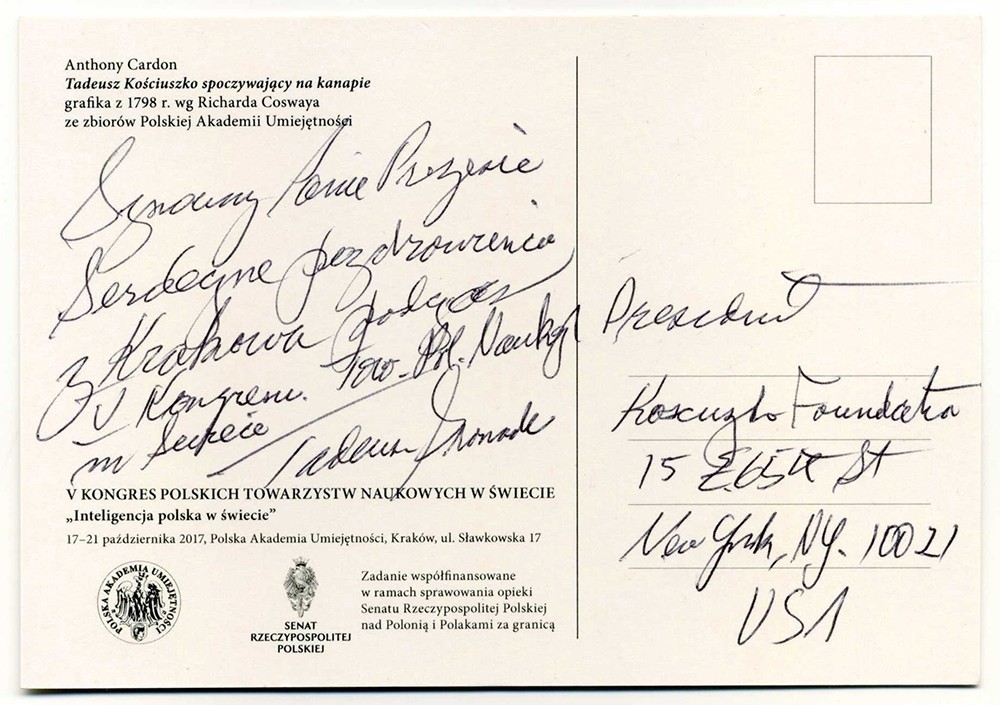 Anthony Cardon
Tadeusz Kościuszko spoczywający na kanapie
grafika z 1798 r. wg Richarda Coswaya
ze zbiorów Polskiej Akademii Umiejętności
Szanowny Panie Prezesie
Serdeczne pozdrowienia
z Krakowa podczas
V Kongresu Tow. Pol. Nauk.
w Świecie
Tadeusz Gromada
V KONGRES POLSKICH TOWARZYSTW NAUKOWYCH W ŚWIECIE
„Inteligencja polska w świecie”
17–21 października 2017, Polska Akademia Umiejętności, Kraków, ul. Sławkowska 17
POLSKA AKADEMIA UMIEJĘTNOŚCI
SENAT
RZECZYPOSPOLITEJ
POLSKIEJ
Zadanie współfinansowane
w ramach sprawowania opieki
Senatu Rzeczypospolitej Polskiej
nad Polonią i Polakami za granicą
President
Foundation
15 E. 65th St
New York, NY. 10021
USA